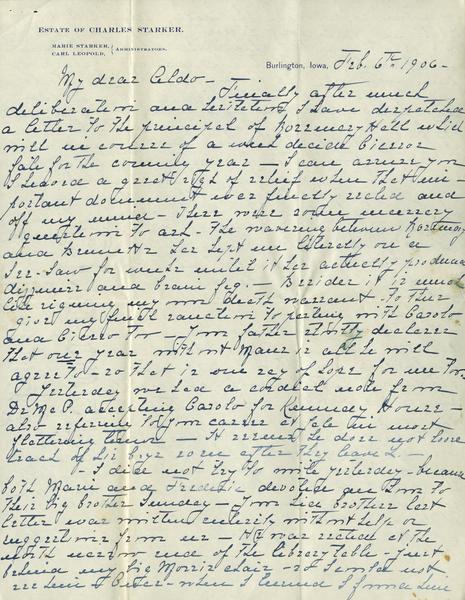 ESTATE OF CHARLES STARKER.
MARIE STARKER,
CARL LEOPOLD,
ADMINISTRATORS.
Burlington, Iowa, Feb. 6th 1906-
My dear Aldo - Finally after much
deliberation and hesitation I have despatched
a letter to the principal of Rosemary Hall which
will in course of a week decide
fate for the coming year - I can assure you
I heaved a great sigh of relief when that im-
portant document was finally sealed and
off my mind - There were some necessary
questions to ask - The wavering between Rosemary
and has kept me literally on a
See-Saw for weeks until it has actually produced
dizziness and brain fag. - Besides it is much
like signing my own death warrant - to thus
give my final sanction to parting with Carolo
and too - Your father stoutly declares
that one year without Marie is all he will
agree to - so that is one ray of hope for me too.
Yesterday we had a cordial note from
Dr McP. accepting Carolo for Kennedy House -
also referring to your career at Yale in most
flattering terms - It seems he does not lose
track of his boys even after they leave L. -
I did not try to write yesterday - because
both Marie and Frederic devoted time to
their big brother Sunday - Your little brother's last
letter was written entirely without help or
suggestion from me - He was seated at the
north narrow end of the library table - just
behind my big Morris chair - so I could not
see him at - when I turned I found him